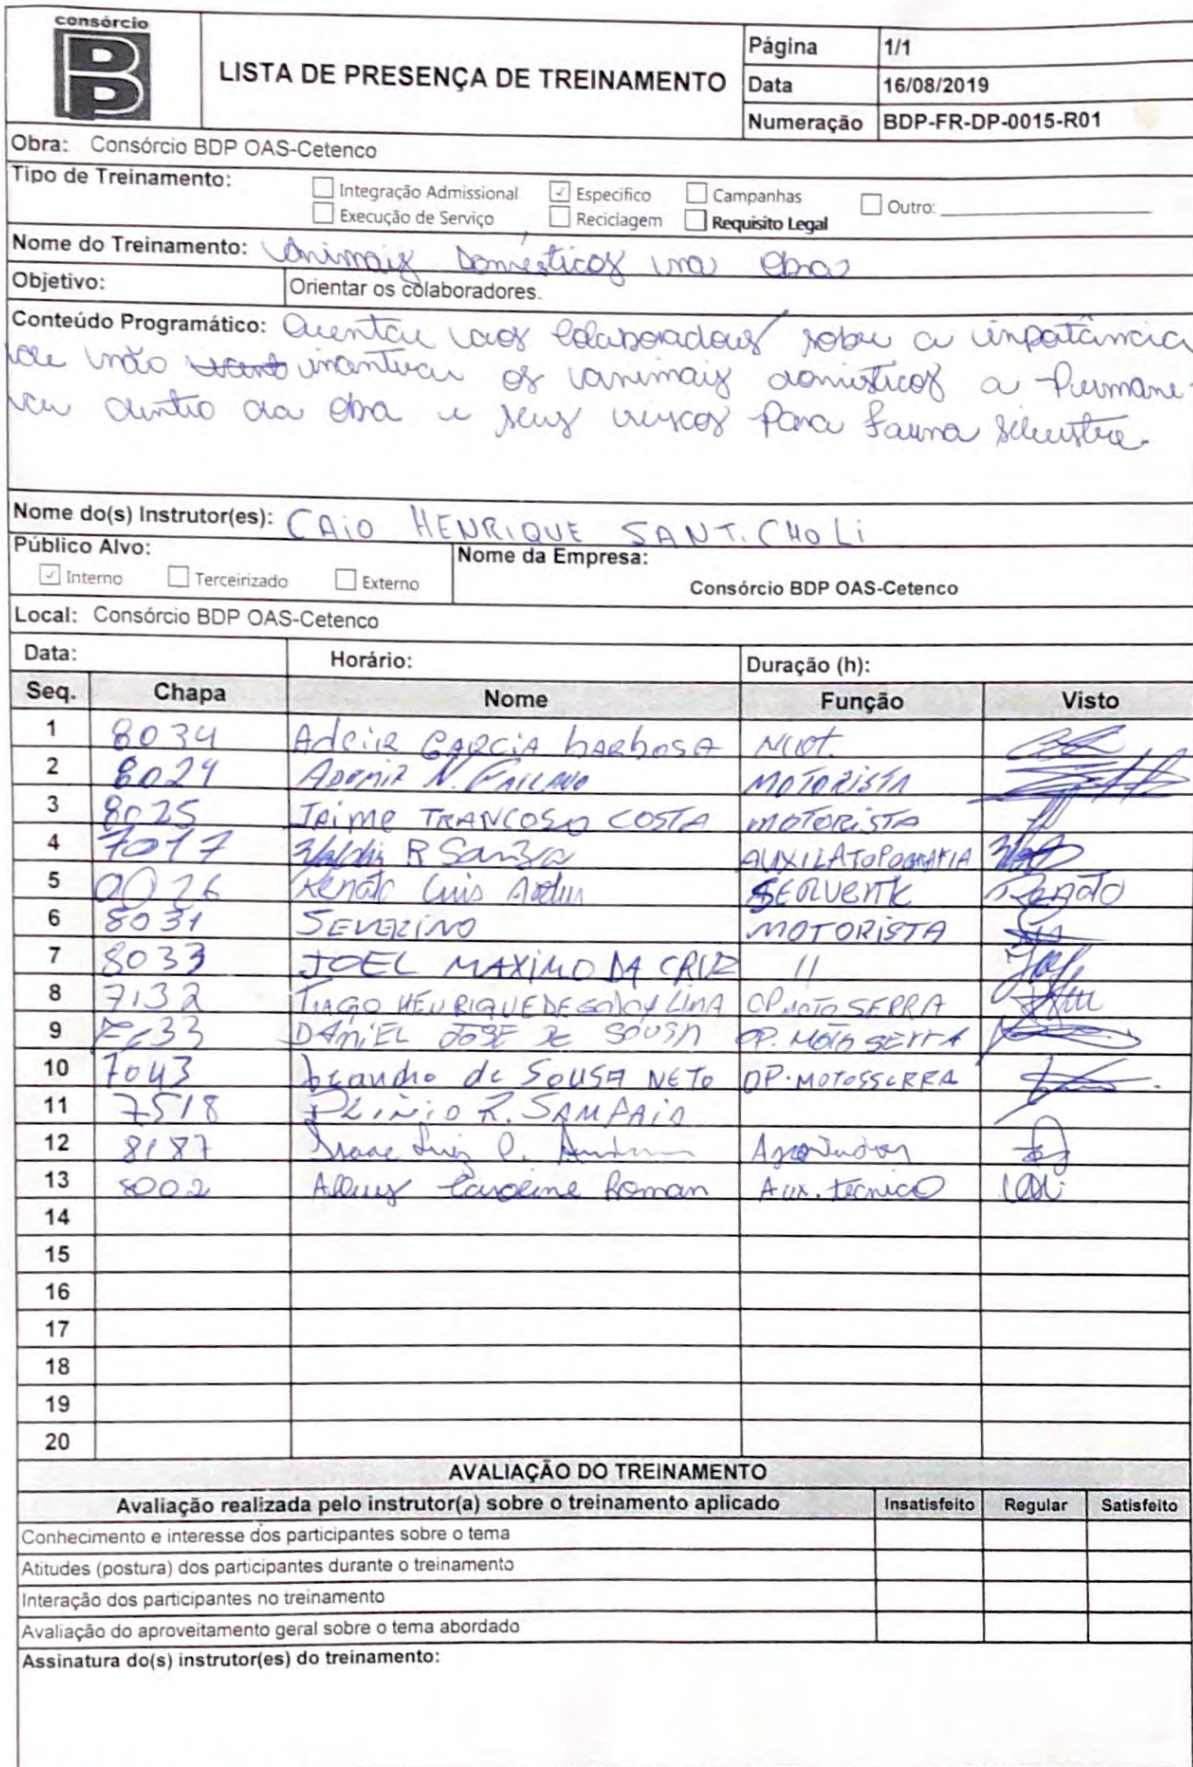 consórcio
LISTA DE PRESENÇA DE TREINAMENTO
Página 1/1
Data 16/08/2019
Numeração BDP-FR-DP-0015-R01
Obra: Consórcio BDP OAS-Cetenco
Tipo de Treinamento:
Integração Admissional Especifico Campanhas Outro:
Execução de Serviço Reciclagem Requisito Legal
Nome do Treinamento: Animais Domésticos na obra
Objetivo: Orientar os colaboradores.
Conteúdo Programático: Orientar aos colaboradores sobre a impotância
de não os animais domésticos a Permane-
cer dentro da obra e seus riscos Para fauna silvestre.
Nome do(s) Instrutor(es): CAIO HENRIQUE SANT.
Público Alvo: Nome da Empresa:
Interno Terceirizado Externo Consórcio BDP OAS-Cetenco
Local: Consórcio BDP OAS-Cetenco
Data: Horário: Duração (h):
Seq. Chapa Nome Função Visto
1 8034 GARCIA barbosa
2 8029 ADEMIR N. MOTORISTA
3 8025 JAIME TRANCOSO COSTA MOTORISTA
4 7017 R Souza
5 Renato Luis SERVENTE Renato
6 8031 SEVERINO MOTORISTA
7 8033 JOEL MAXIMO DA CRUZ 11
8 7132 TIAGO HENRIQUE DE LIMA OP MOTO SERRA
9 DANIEL JOSE DE SOUSA OP. MOTO SERRA
10 7043 de SOUSA NETO OP. MOTOSSERRA
11 7518 PLINIO R. SAMPAIO
12 8187 Luiz Apontador
13 8002 Caroline Roman Aux. técnico
14
15
16
17
18
19
20
AVALIAÇÃO DO TREINAMENTO
Avaliação realizada pelo instrutor(a) sobre o treinamento aplicado Insatisfeito Regular Satisfeito
Conhecimento e interesse dos participantes sobre o tema
Atitudes (postura) dos participantes durante o treinamento
Interação dos participantes no treinamento
Avaliação do aproveitamento geral sobre o tema abordado
Assinatura do(s) instrutor(es) do treinamento: